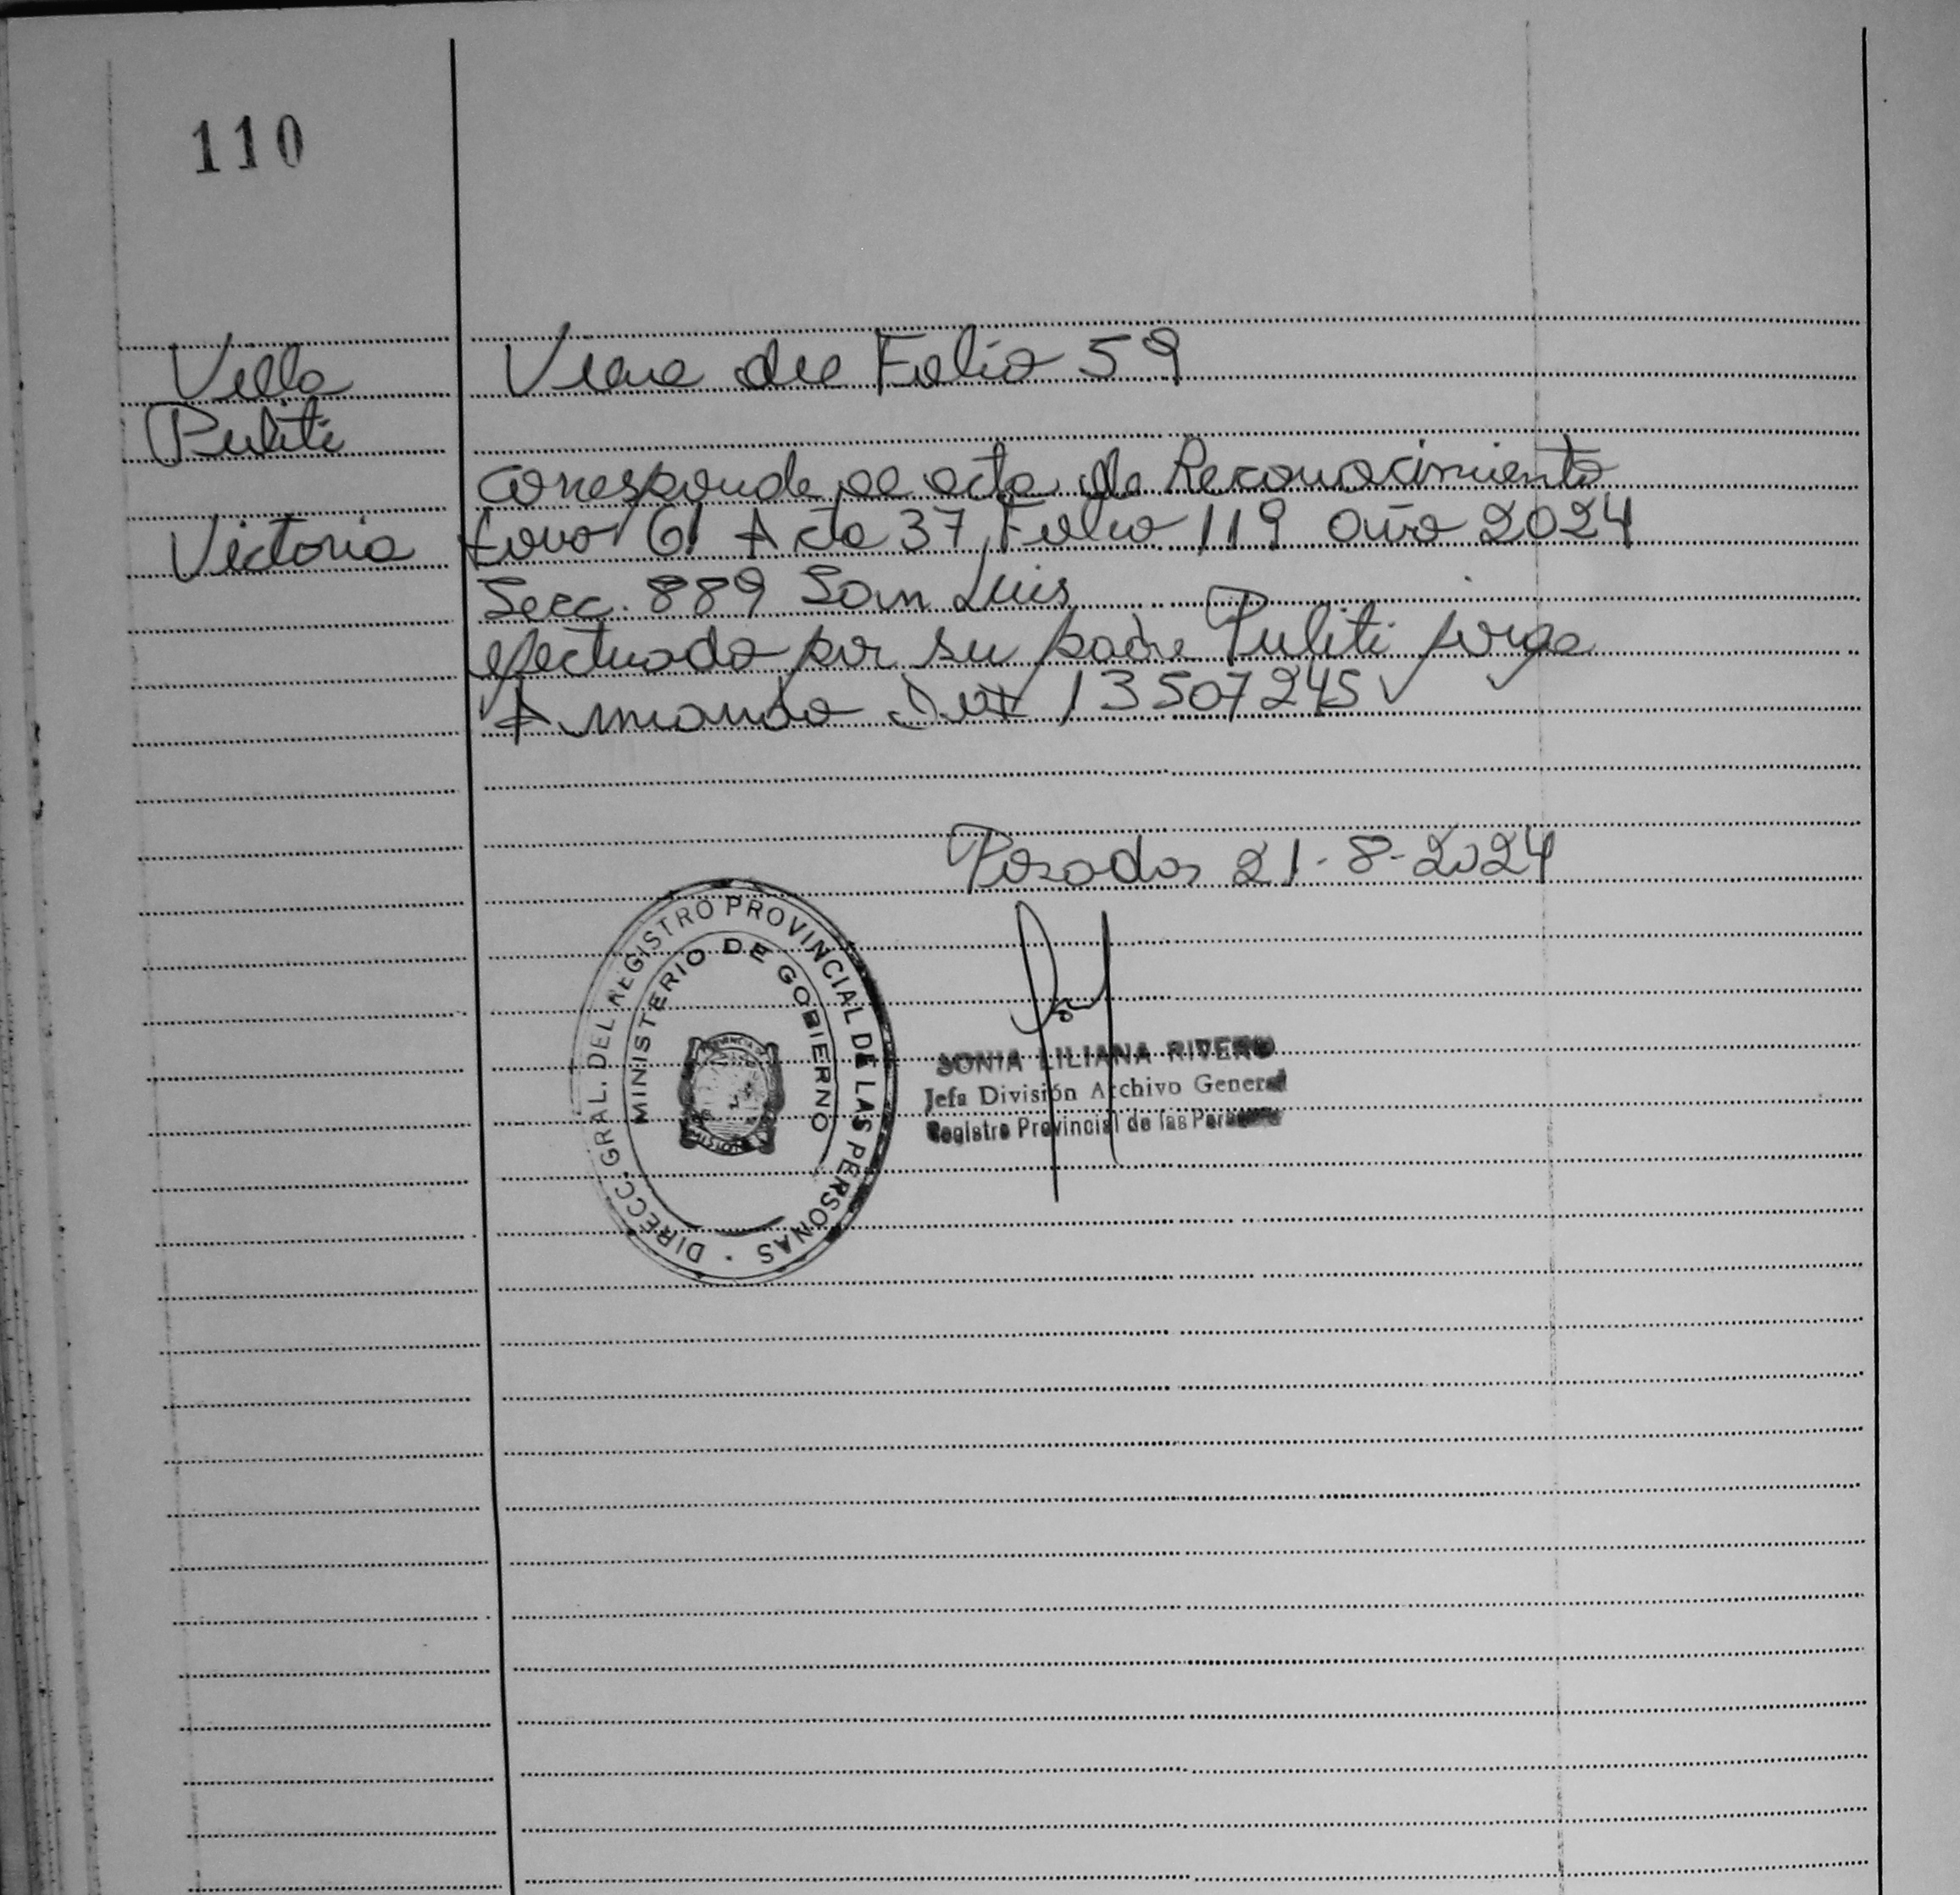 110
Villa
Puliti
Victoria
Viene del Folio 59
corresponde al acta de Reconocimiento
tomo 61 Acta 37 Folio 119 año 2024
Secc. 889 San Luis
efectuado por su padre Puliti Jorge
Armando DNI 13507245
Posadas 21-8-2024
DIRECC. GRAL. DEL REGISTRO PROVINCIAL DE LAS PERSONAS
MINISTERIO DE GOBIERNO
SONIA LILIANA RIVERO
Jefa División Archivo General
Registro Provincial de las Personas